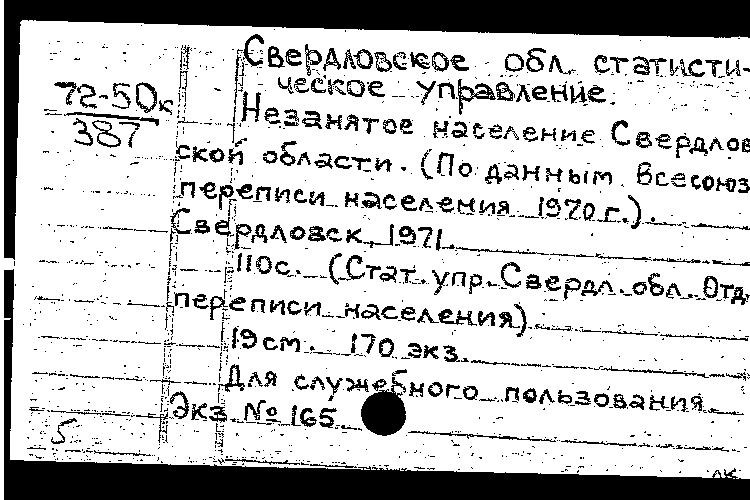 Свердловское обл. статисти-
ческое управление.
72-5Dк
387
Незанятое население Свердлов
ской области. (По данным Всесоюз
переписи населения 1970 г.).
Свердловск, 1971.
110с. (Стат. упр. Свердл. обл. Отд.
переписи населения)
19см. 170 экз.
Для служебного пользования
Экз. № 165
5
лк